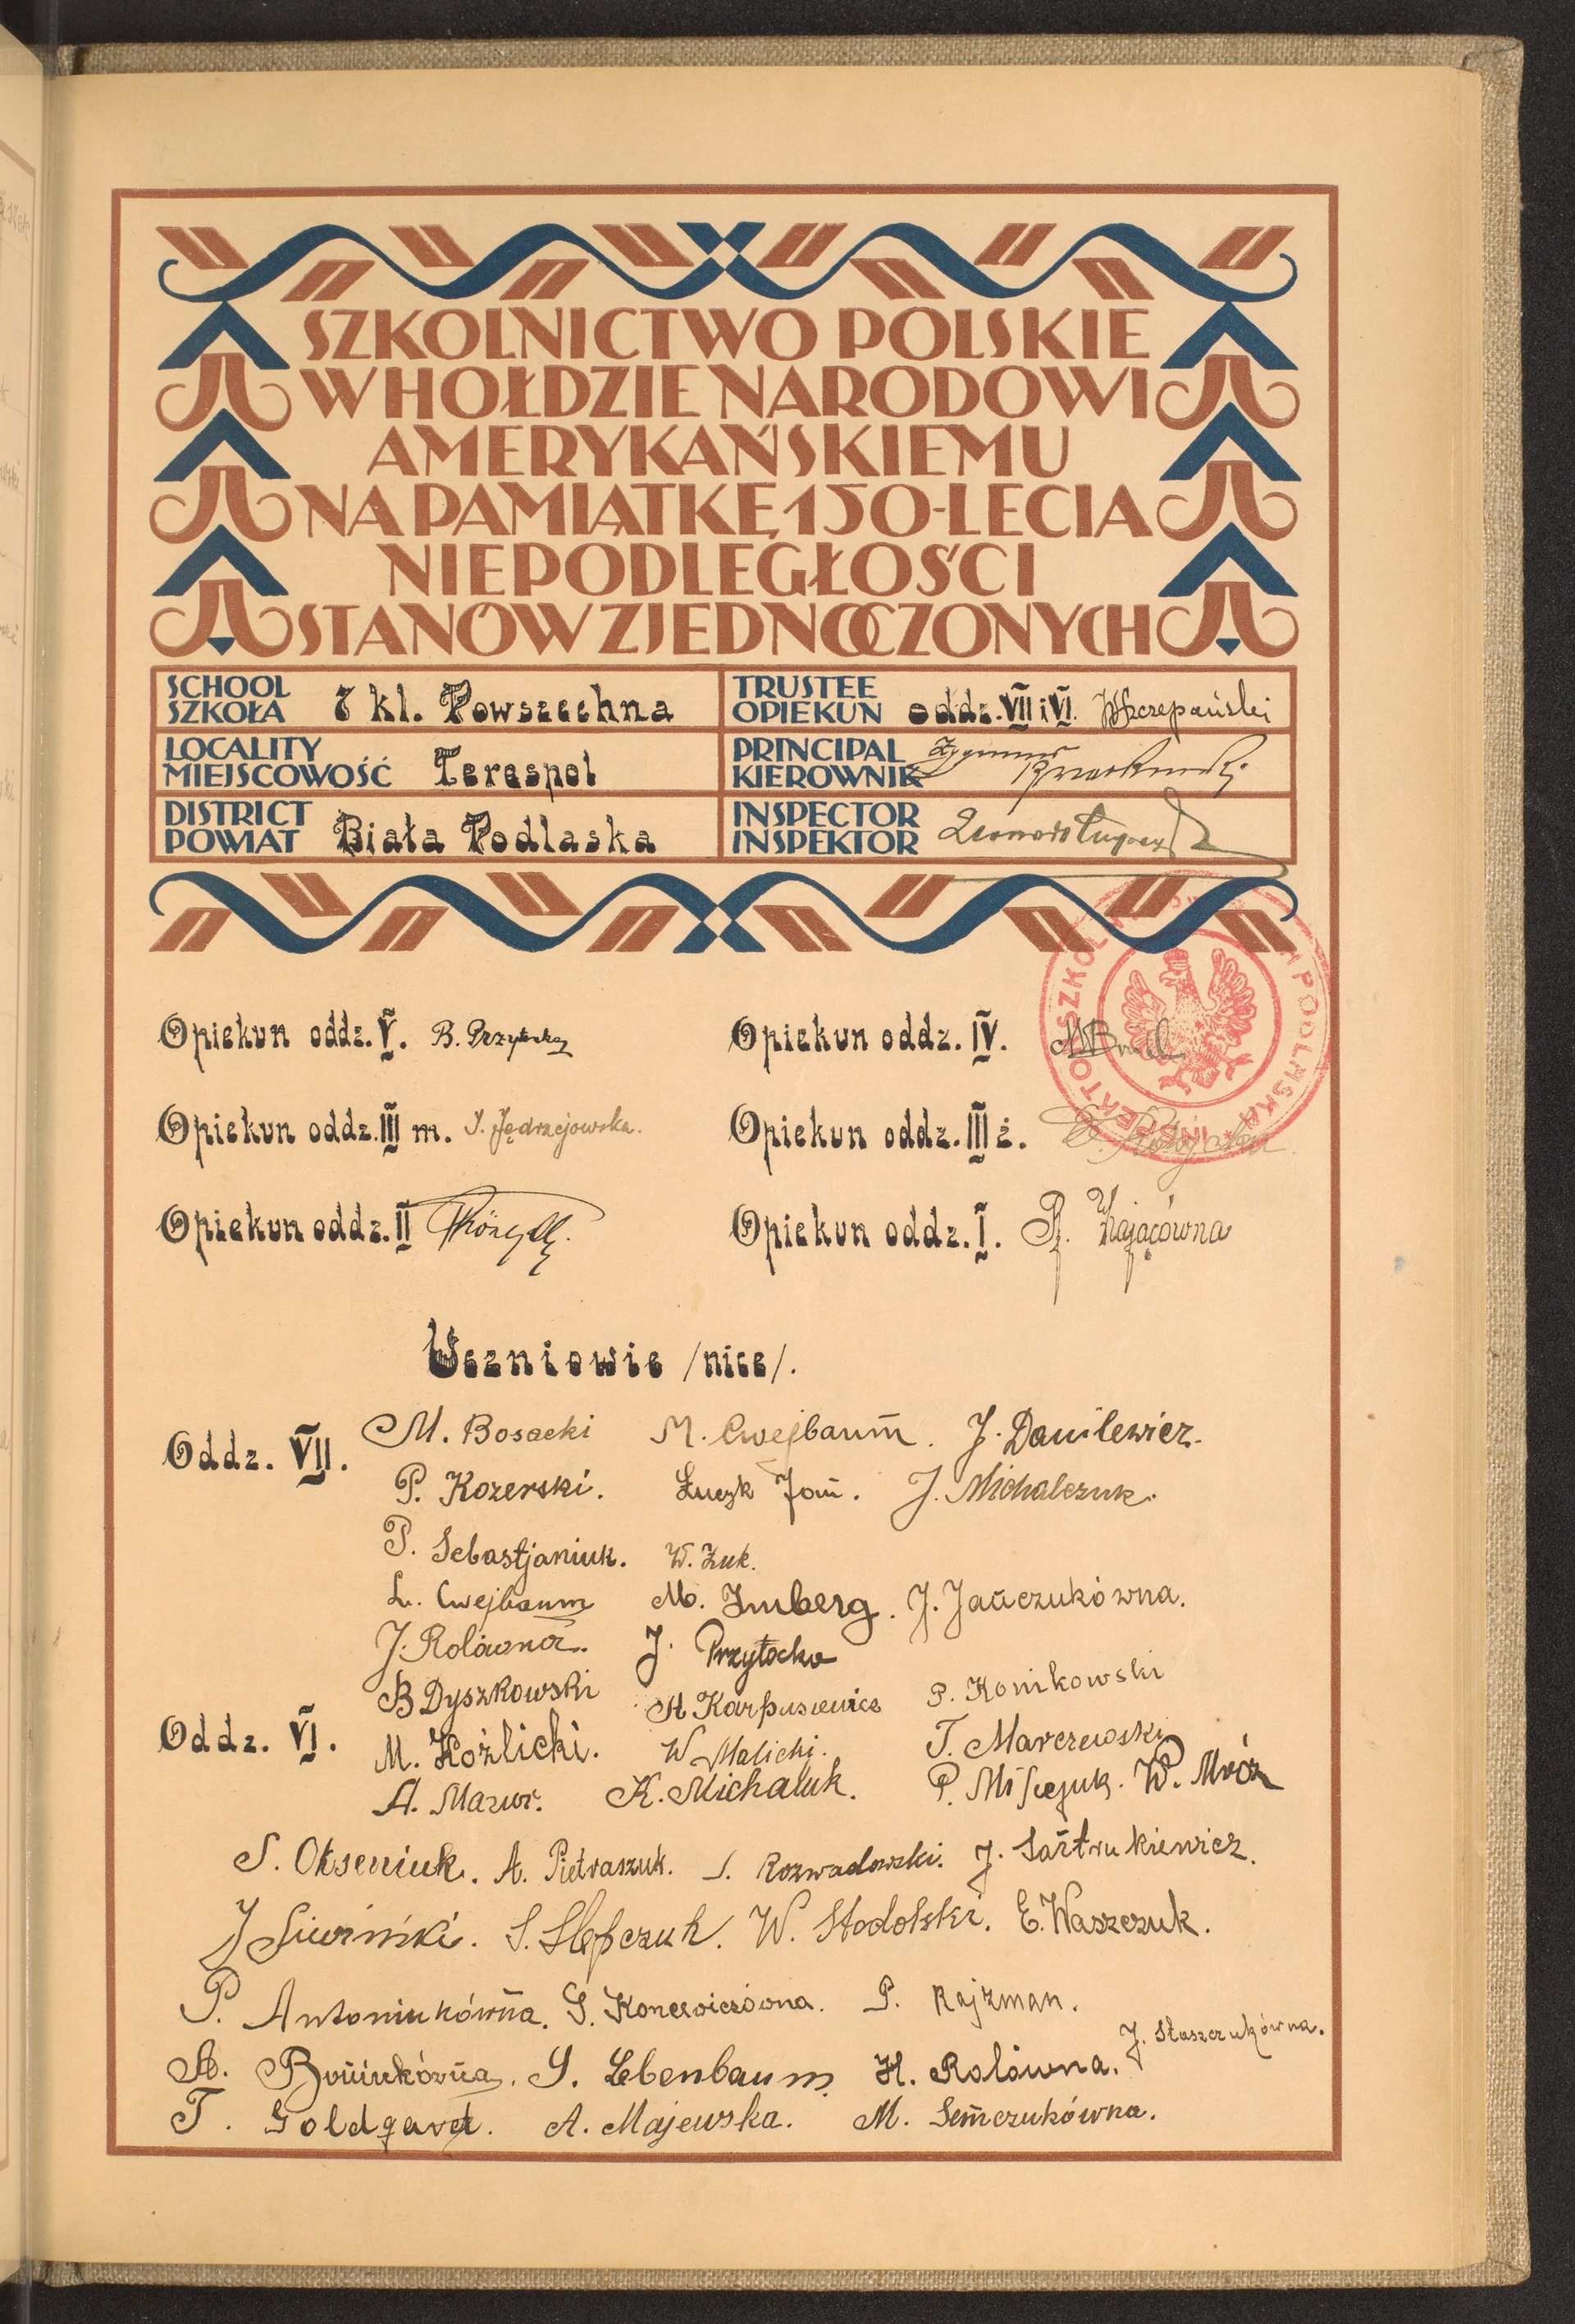 SZKOLNICTWO POLSKIE
W HOŁDZIE NARODOWI
AMERYKAŃSKIEMU
NA PAMIĄTKĘ 150-LECIA
NIEPODLEGŁOŚCI
STANÓW ZJEDNOCZONYCH
SCHOOL
SZKOŁA 7 kl. Powszechna
TRUSTEE
OPIEKUN oddz. VII i VI. W Szczepański
LOCALITY
MIEJSCOWOŚĆ Terespol
PRINCIPAL
KIEROWNIK Zygmunt
DISTRICT
POWIAT Biała Podlaska
INSPECTOR
INSPEKTOR
Opiekun oddz. V. B. Opiekun oddz. IV.
Opiekun oddz. III m. J. Jędrzejowska. Opiekun oddz. III ż.
Opiekun oddz. II Opiekun oddz. I. Zającówna
Uczniowie /nice/.
Oddz. VII. M. Bosacki M. Cwejbaum. J. Danilewicz.
P. Kozerski. Łuczk Jan. J. Michalczuk.
P. Sebastjaniuk. W. Żuk.
L. Cwejbaum M. Imberg. J. Jańczukówna.
J. Rolówna. J. Przyłocka
B Dyszkowski A Karpusiewicz P. Konikowski
Oddz. VI. M. Koźlicki. W Malicki. T. Marczewski
A. Mazur. K. Michaluk. P. Misiejuk. W. Mróz
S. Okseniuk. A. Pietraszuk. S. Rozwadowski. J. Sartrukiewicz.
J Siwiński. S. Slepczuk. W. Stodolski. E. Waszczuk.
P. Antoniukówna. G. Koncewiczówna. P. Rajzman.
J. Staszczukówna.
A. S. Lebenbaum H. Rolówna.
T. Goldgard. A. Majewska. M. Semczukówna.